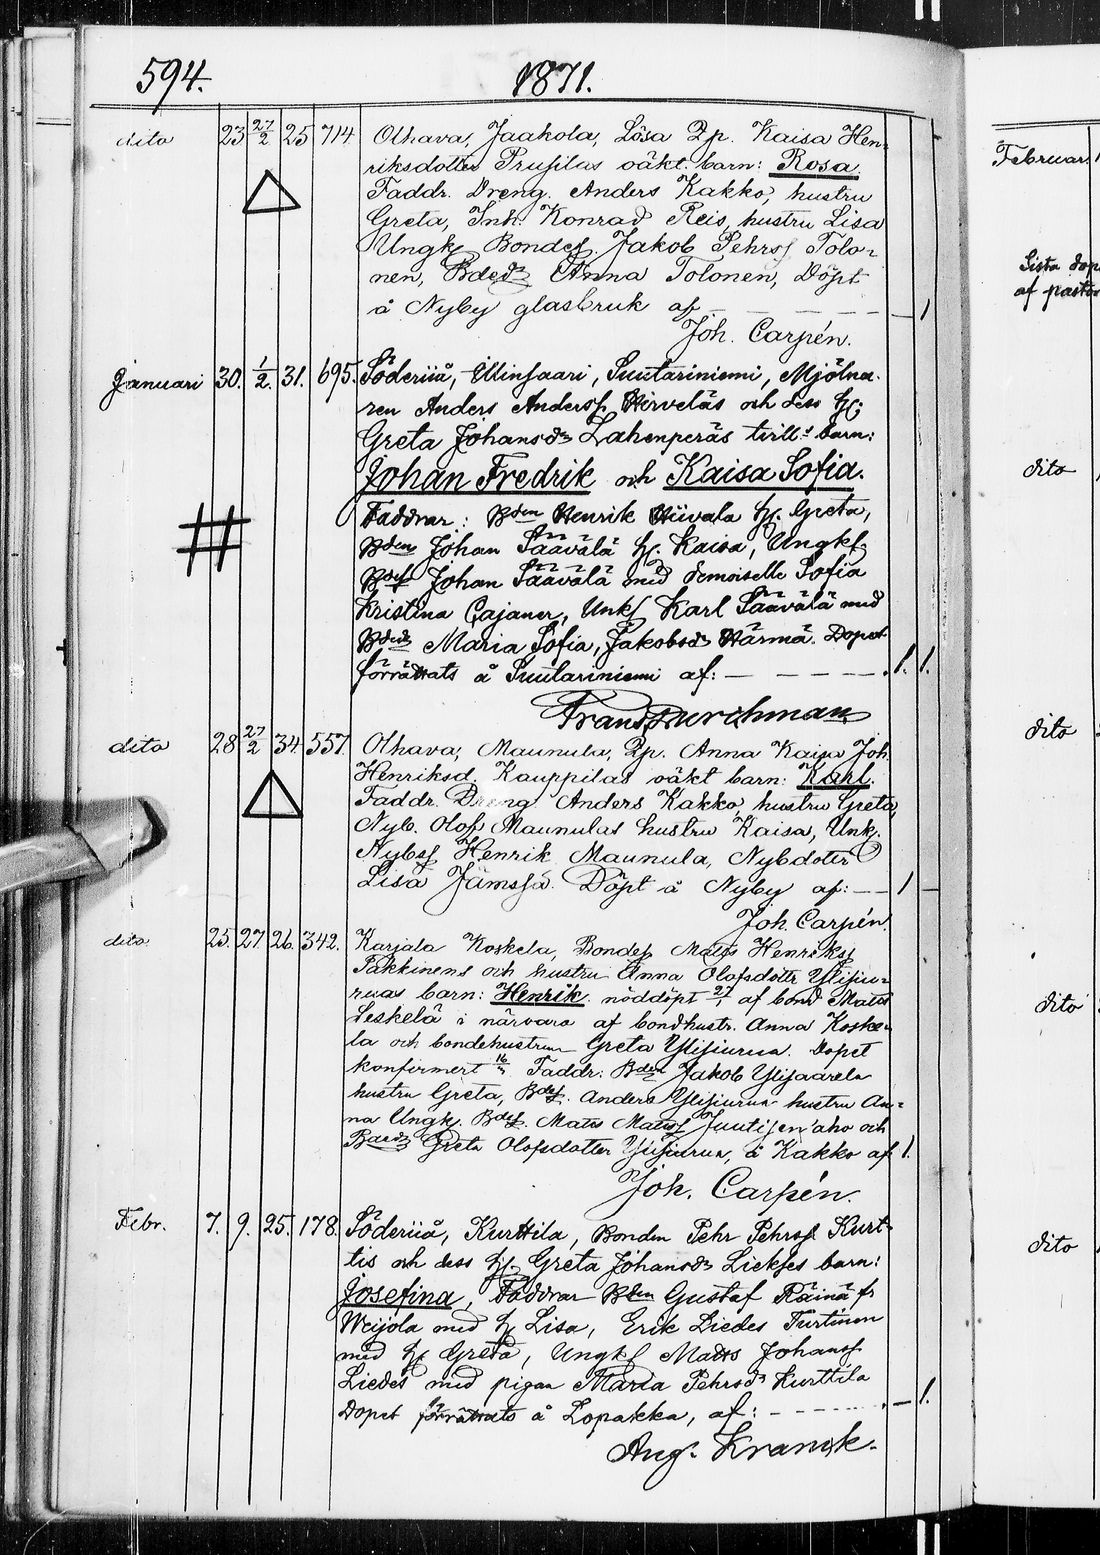 594.
1871.
dito 23 27/2 25 714 Olhava, Jaakola, Lösa Pp. Kaisa Hen-
riksdotter Prufilas oäkt. barn: Rosa.
Faddr. Dreng. Anders Kakko, hustru
Greta, Inh. Konrad Reis, hustru Lisa
Ungk. Bondes. Jakob Pehrs. Tolo-
nen, Bdedr Anna Tolonen, Döpt
å Nyby glasbruk af — — — — 1
Joh. Carpén.
Januari 30. 1/2. 31. 695. Söderijå, Illinsaari, Suutariniemi, Mjölna-
ren Anders Andersf. Hirveläs och dess h:
Greta Johansdr Lahenperäs tvill: barn:
Johan Fredrik och Kaisa Sofia.
Faddrar: Bden Henrik Hiivala h. Greta,
Bden Johan Säävälä h. Kaisa, Ungk.
Bdes Johan Säävälä med demoiselle Sofia
Kristina Cajaner, Unk. Karl Säävälä med
Bdedr Maria Sofia, Jakobsdr Härmä. Dopet
förrättats å Suutariniemi af: — — — — 1. 1.
Frans Durchman
dito 28 27/2 34. 557. Olhava, Maunula, Pp. Anna Kaisa Joh.
Henriksd. Kauppilas oäkt barn: Kahl.
Faddr. Dreng Anders Kakko, hustru Greta,
Nyb. Olof Maunulas hustru Kaisa, Unk.
Nybs. Henrik Maunula, Nybdoter
Lisa Jämsjä. Döpt å Nyby af: — — 1 —
Joh. Carpén.
dito. 25. 27 26. 342. Karjala Koskela, Bondes. Matts Henriks.
Pakkinens och hustru Anna Olofsdotter Ylisiu-
ruas barn: Henrik. nöddöpt 27/1 af bond Matts
Leskelä i närvaro af bondhustr. Anna Koske-
la och bondehustrun Greta Ylisiurua. Dopet
konfirmert 16/ Faddr: Bden Jakob Ylisaarela
hustru Greta, Bdes. Anders Ylisiurua hustru An-
na Ungk. Bdes. Matts Matts. Juutisenaho och
Bdedr Greta Olofsdotter Ylisiurua, å Kakko af 1.
Joh. Carpén.
Febr. 7. 9. 25. 178. Söderijå, Kurttila, Bonden Pehr Pehrs. Kurt-
tis och dess h. Greta Johansdr Liekjes barn:
Josefina, Faddrar Bden Gustaf Räinä fr
Weijola med h Lisa, Erik Liedes Turtinen
med h. Greta, Ungk. Matts Johansf.
Liedes med pigan Maria Pehrsdr Kurttila
Dopet förrättats å Lopakka, af: - - - - - — 1.
Aug. Kranck.
Februari
Sista dop
af pastor
dito
dito
dito
dito